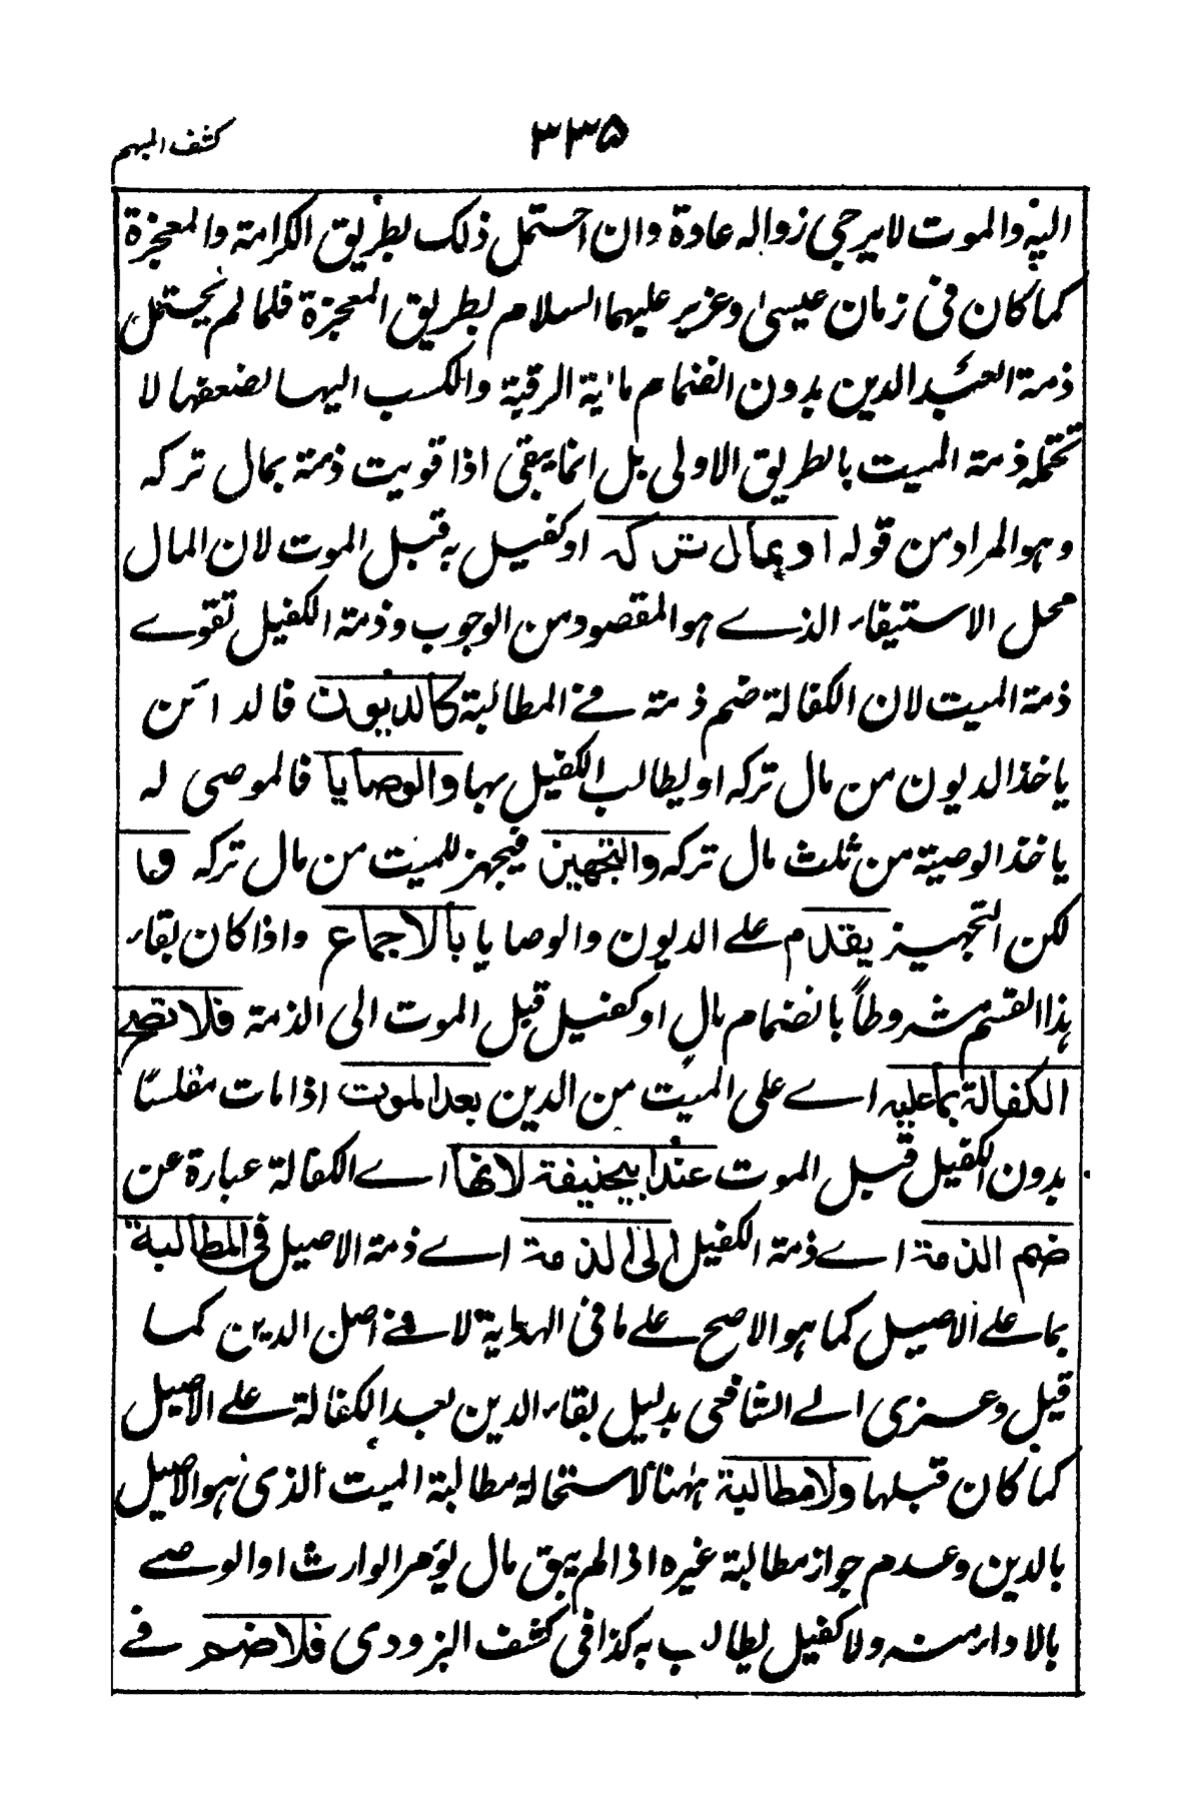 كشف المبهم
٣٣٥
اليه والموت لا يرجى زواله عادة وان احتمل ذلك بطريق الكرامة والمعجزة
كما كان فى زمان عيسىٰ وعزير عليهما السلام بطريق المعجزة فلما لم يحتمل
ذمة العبد الدين بدون انضمام مالية الرقبة والكسب اليها لضعفها لا
تحتمله ذمة الميت بالطريق الاولى بل انما يبقى اذا قويت ذمته بمال تركه
وهو المراد من قوله او بمال تركه او كفيل به قبل الموت لان المال
محل الاستيفاء الذے هو المقصود من الوجوب وذمة الكفيل تقوے
ذمة الميت لان الكفالة ضم ذمة فے المطالبة كالديون فالدائن
ياخذ الديون من مال تركه او يطالب الكفيل بها والوصايا فالموصى له
ياخذ الوصية من ثلث مال تركه والتجهيز فيجهز للميت من مال تركه و
لكن التجهيز يقدم علے الديون والوصايا بالاجماع واذا كان بقاء
هذا القسم مشروطاً بانضمام مال او كفيل قبل الموت الى الذمة فلا تصح
الكفالة بما عليه اے على الميت من الدين بعد الموت اذا مات مفلسًا
بدون الكفيل قبل الموت عند ابيحنيفة لانها اے الكفالة عبارة عن
ضم الذمة اے ذمة الكفيل الى الذمة اے ذمة الاصيل فى المطالبة
بما علے الاصيل كما هو الاصح علے ما فى الهداية لا فے اصل الدين كما
قيل وعزى الے الشافعى بدليل بقاء الدين بعد الكفالة علے الاصيل
كما كان قبلها ولا مطالبة ههنا لاستحالة مطالبة الميت الذى هو الاصيل
بالدين وعدم جواز مطالبة غيره اذا لم يبق مال يؤمر الوارث او الوصے
بالاداء منه ولا كفيل يطالب به كذا فى كشف البزودى فلا ضم فے